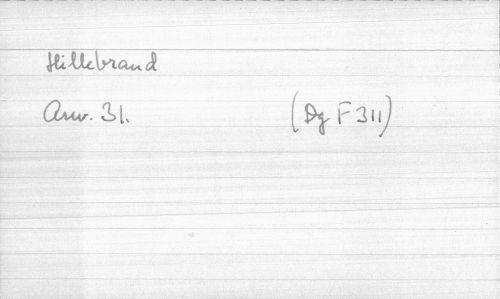 Hillebrand
Anw. 31. (Dg F 311)